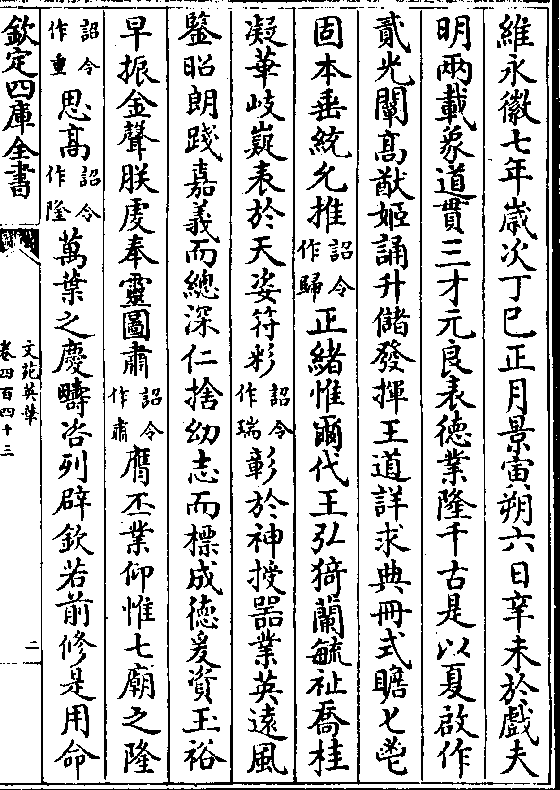 維永徽七年嵗次丁巳正月景寅朔六日辛未於戲夫
明兩載象道貫三才元良表徳業隆千古是以夏啟作
貳光闡髙猷姬誦升儲發揮王道詳求典冊式瞻七鬯
固本垂統允推詔令作歸正緒惟爾代王弘猗蘭毓祉喬桂
凝華岐嶷表於天姿符彩詔令作瑞彰於神授器業英遠風
鑒昭朗踐嘉義而總深仁捨幼志而標成徳爰資玉裕
早振金聲朕虔奉靈圖肅詔令作肅膺丕業仰惟七廟之隆
詔令作重思髙詔令作隆萬葉之慶疇咨列辟欽若前修是用命
欽定四庫全書
文苑英華
卷四百四十三
二